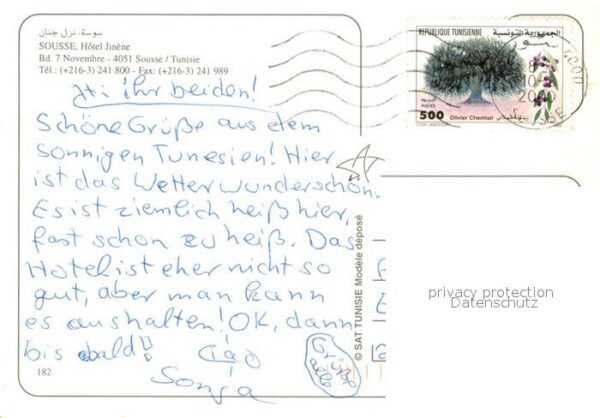 سوسة - نزل جنان
SOUSSE, Hôtel Jinène
Bd. 7 Novembre - 4051 Sousse / Tunisie
Tél.: (+216-3) 241 800 - Fax: (+216-3) 241 989
الجمهورية التونسية
REPUBLIQUE TUNISIENNE
POSTES
500
Olivier Chemlali
Hi ihr beiden!
Schöne Grüße aus dem
sonnigen Tunesien! Hier
ist das Wetter wunderschön.
Es ist ziemlich heiß hier,
fast schon zu heiß. Das
Hotel ist eher nicht so
gut, aber man kann
es aushalten! OK, dann
bis bald!!
Ciao
Sonja
182
© SAT TUNISIE Modèle déposé
privacy protection
Datenschutz